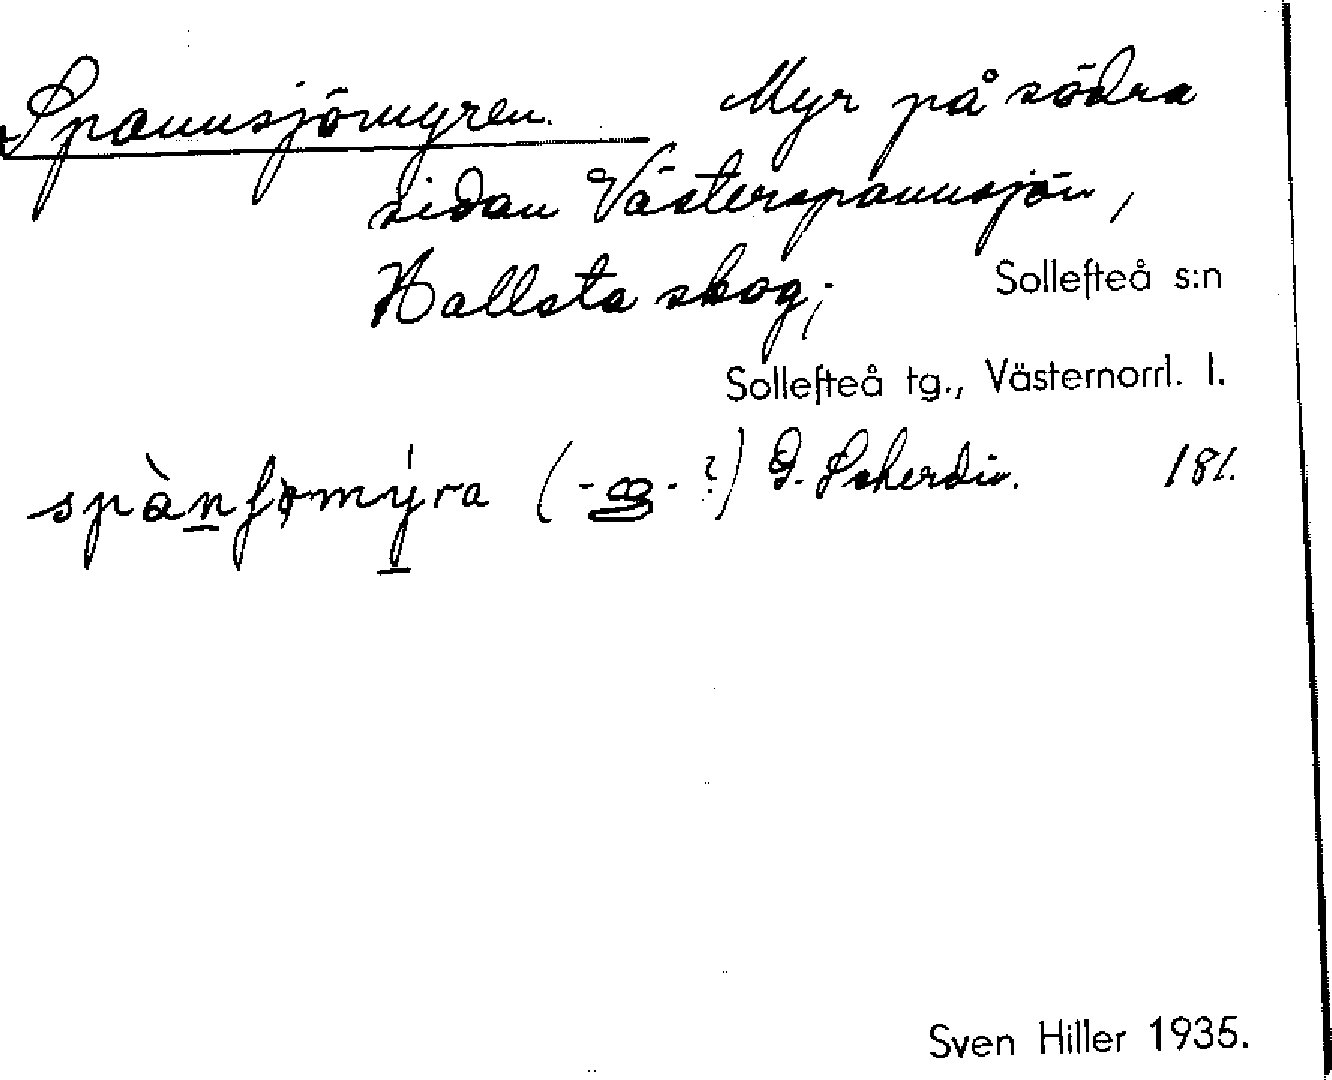 Spannsjömyren. Myr på södra
sidan Västerspannsjön,
Hallsta skog;
Sollefteå s:n
Sollefteå tg., Västernorrl. l.
(- - ?) G. Scherdin. 181.
Sven Hiller 1935.